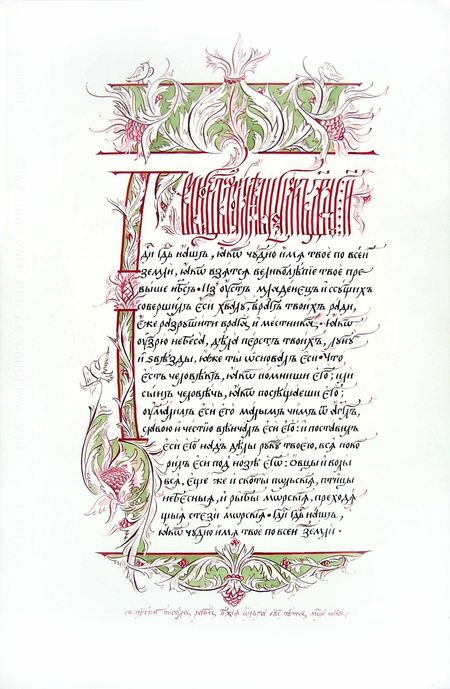 ди гдь нашъ, ꙗкѡ чꙋдно имѧ твое по всей
земли, ꙗкѡ взѧтсѧ великолѣпїе твое пре
выше нбсъ. Из оустъ младенецъ и ссꙋщихъ
совершилъ еси хвалꙋ, врагъ твоихъ ради,
еже разрꙋшити врага и местника. Ꙗкѡ
оузрю небеса, дѣла перстъ твоихъ, лꙋнꙋ
и ѕвѣзды, ꙗже ты ѡсновалъ еси. Что
есть человѣкъ, ꙗкѡ помниши его; или
сынъ человѣчь, ꙗкѡ посѣщаеши его;
оумалилъ еси его малымъ чимъ ѿ агглъ,
славою и честїю вѣнчалъ еси его: и поставилъ
еси его надъ дѣлы рꙋкꙋ твоею, всѧ поко
рилъ еси под нозѣ егѡ: ѻвцы и волы
всѧ, еще же и скоты польскїѧ, птицы
небесныѧ, и рыбы мѡрскїѧ, преходѧ
щыѧ стези мѡрскїѧ. Гди гдь нашъ,
ꙗкѡ чꙋдно имѧ твое по всей земли.